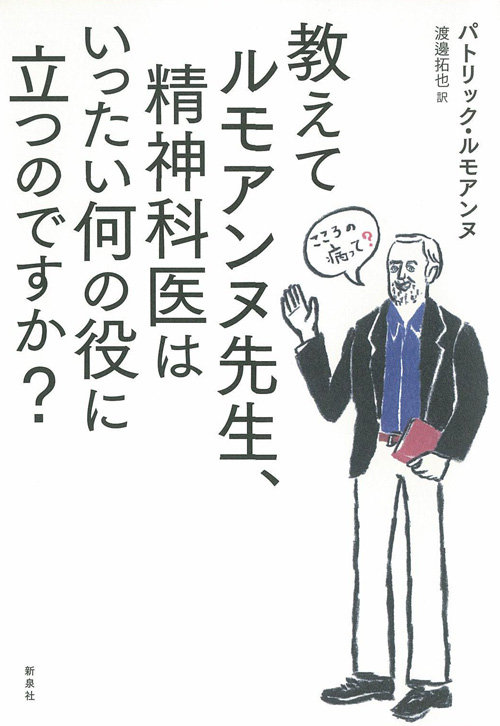 パトリック・ルモアンヌ
渡邊拓也 訳
教えて
ルモアンヌ先生、
精神科医は
いったい何の役に
立つのですか?
こころの
病って?
新泉社